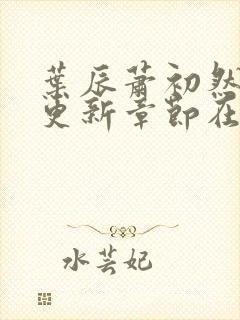 葉辰蕭初然
更新章節在
水芸妃